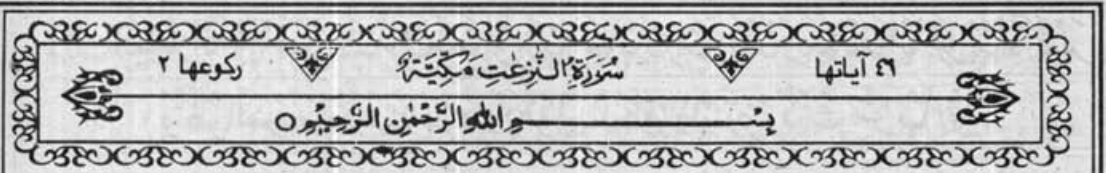 ٤٦ آیاتها سُوْرَةُ النّٰزِعٰتِ مَکِّیَّةٌ رکوعها ٢
بِسْمِ اللهِ الرَّحْمٰنِ الرَّحِيْمِ ○